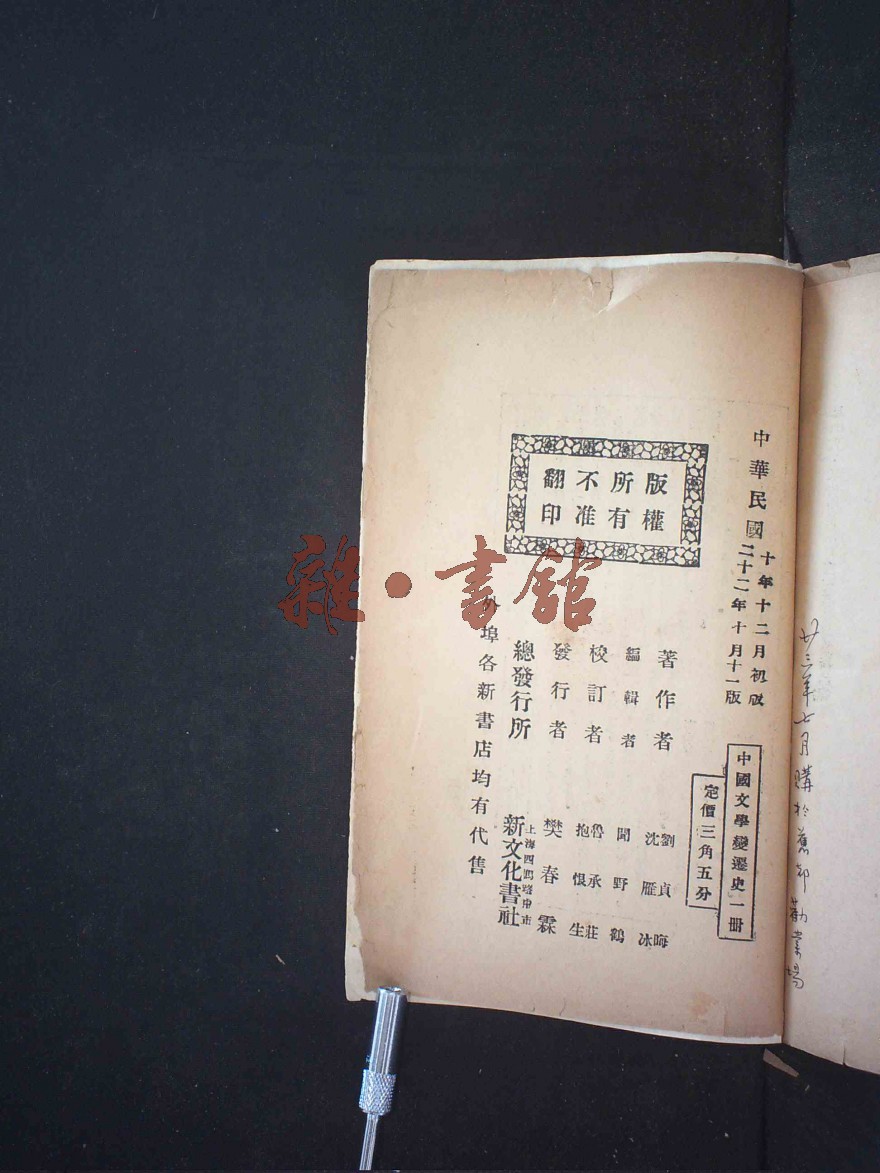 廿三年七月購於舊都勸業場
中華民國
十年十二月初版
二十二年十月十一版
中國文學變遷史一册
定價三角五分
版權
所有
不准
翻印
著作者 劉貞晦 沈雁冰
編輯者 聞野鶴
校訂者 魯承莊 抱恨生
發行者 樊春霖
總發行所 上海四馬路中市 新文化書社
外埠各新書店均有代售
雜·書館